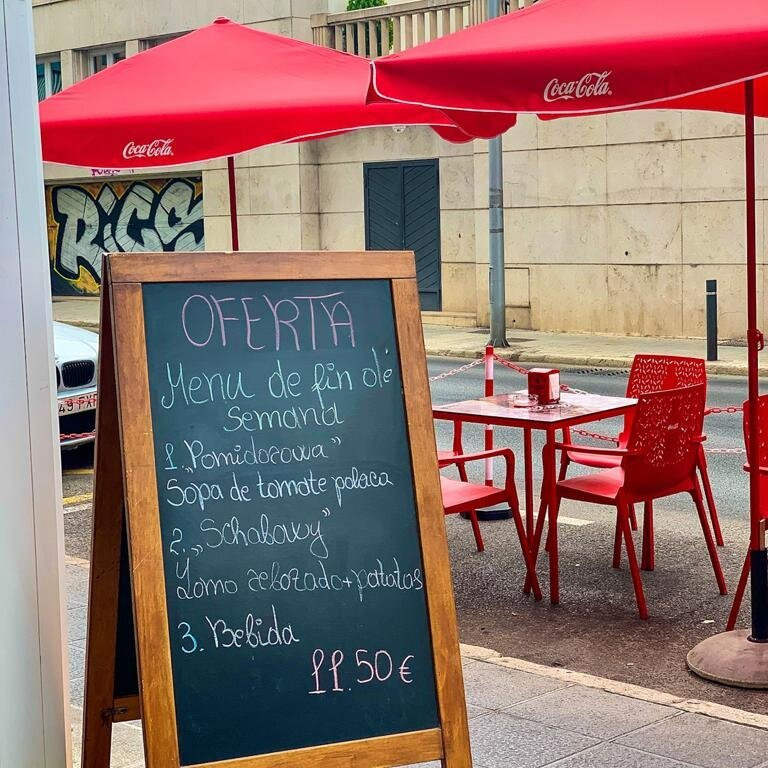 Coca-Cola
Coca-Cola
RICE
OFERTA
Menu de fin de
semana
1. „Pomidorowa”
Sopa de tomate polaca
2. „Schabowy”
Lomo rebozado + patatas
3. Bebida
11.50 €